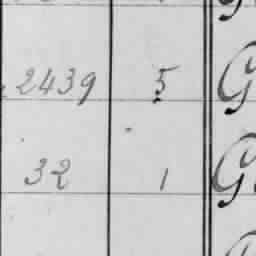 2439 5 G
32 1 G